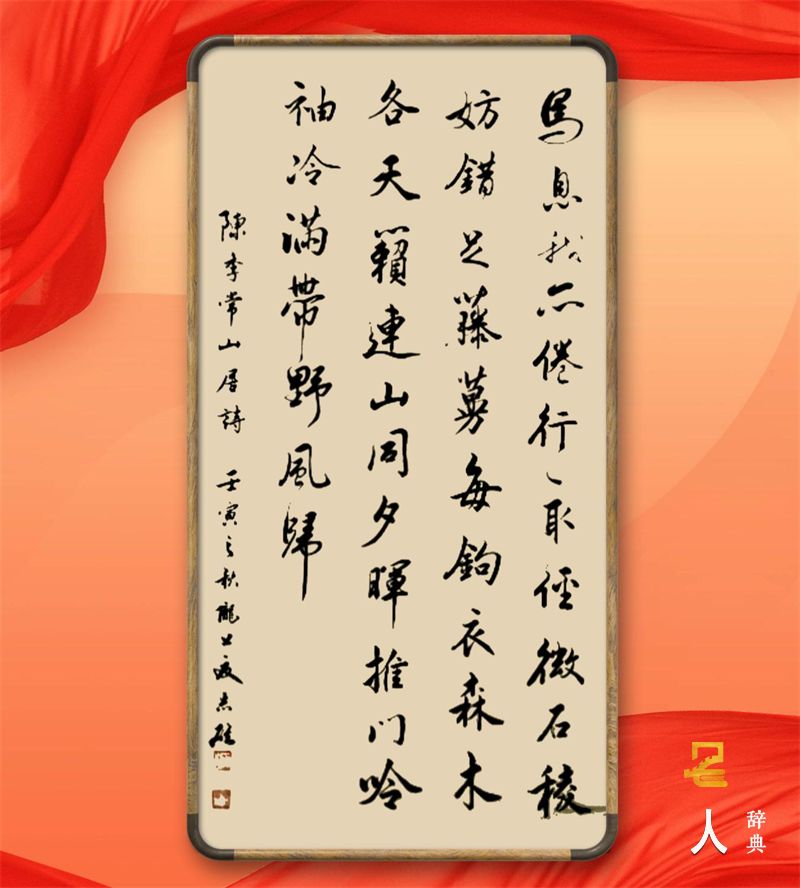 馬息我亦倦行〻取径微石稜
妨錯足藤蔓每鉤衣森木
各天籟連山同夕暉推门吟
袖冷滿帶野風歸
陳季常山居詩 壬寅之秋隴上
名人
辞典